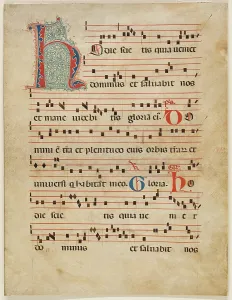 Hodie scie tis quia veniet
dominus et salvabit nos
et mane videbi tis gloria D O
mini ē tra et plenitudo eius orbis
universi q habitāt in eo. Gloria. H o
die scie tis qua ve ni et
do minus et salvabit nos